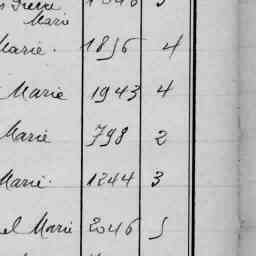 Marie
Marie. 1856 4
Marie 1943 4
Marie 798 2
Marie. 1244 3
Marie 2046 5